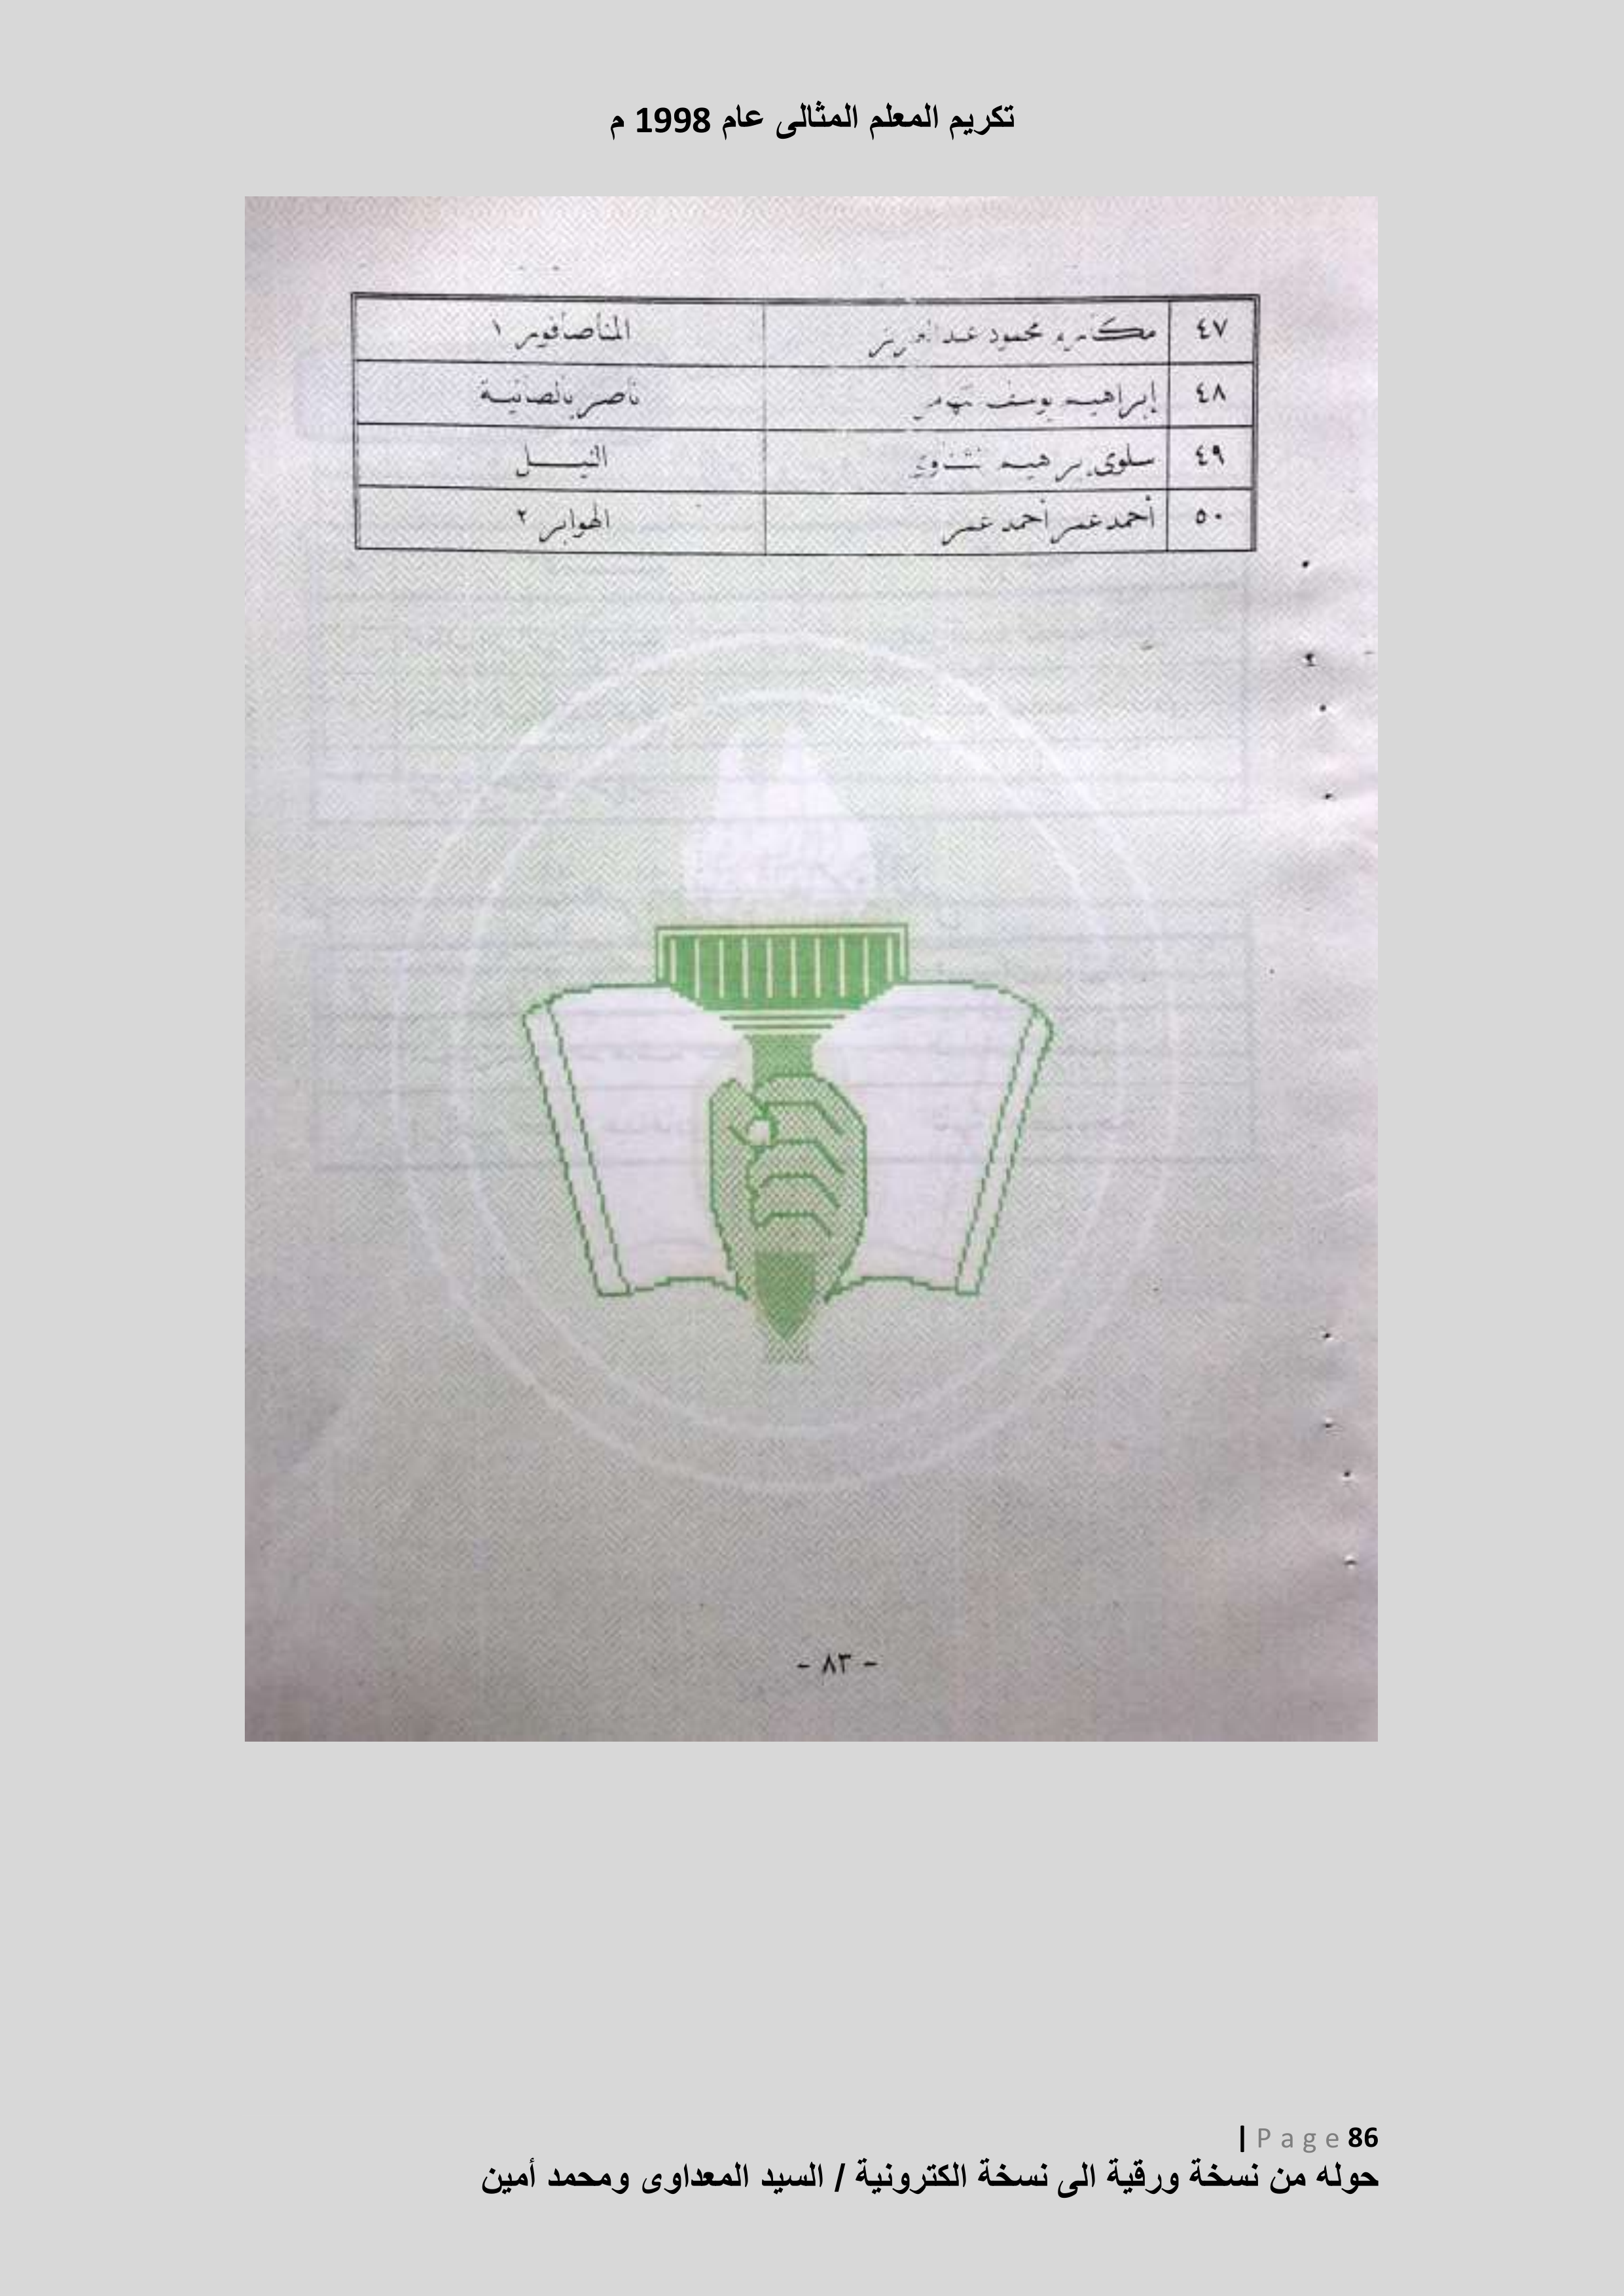 تكريم المعلم المثالى عام 1998 م
٤٧ محمود عبدالعزيز المناصافور ١
٤٨ إبراهيم يوسف ناصر بالصانية
٤٩ سلوى إبراهيم النيل
٥٠ أحمد عمر أحمد عمر الهوابر ٢
- ٨٣ -
86 Page |
حوله من نسخة ورقية الى نسخة الكترونية / السيد المعداوى ومحمد أمين